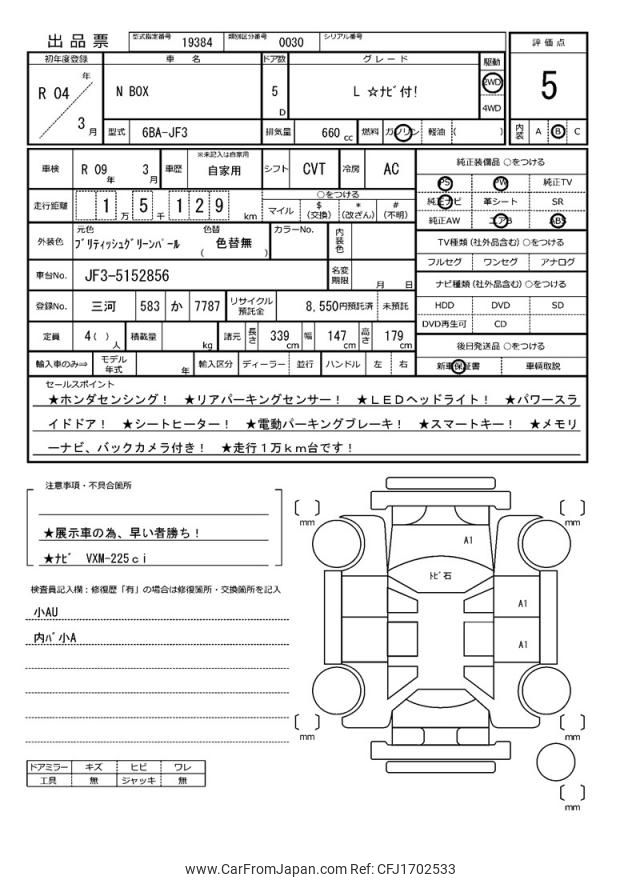 出品票
型式指定番号 19384 類別区分番号 0030 シリアル番号
初年度登録 車 名 ドア数 グレード 駆動 評価点
R 04 年 3 月
N BOX 5 D L ☆ナビ付! 2WD 4WD
5
型式 6BA-JF3 排気量 660 cc 燃料 ガソリン 軽油 ( )
内装 A B C
車検 R 09 年 3 月 車歴 ※未記入は自家用 自家用 シフト CVT 冷房 AC
純正装備品 ○をつける
PS PW 純正TV
純正ナビ 革シート SR
純正AW エアB ABS
走行距離 1 万 5 千 1 2 9 km
○をつける
マイル $ (交換) * (改ざん) # (不明)
外装色 元色 ブリティッシュグリーンパール 色替 ( 色替無 ) カラーNo. 内装色
TV種類 (社外品含む) ○をつける
フルセグ ワンセグ アナログ
車台No. JF3-5152856 名変期限 月 日
ナビ種類 (社外品含む) ○をつける
HDD DVD SD
DVD再生可 CD
登録No. 三河 583 か 7787 リサイクル預託金 8,550円預託済 未預託
定員 4( ) 人 積載量 kg 諸元 長さ 339 cm 幅 147 cm 高さ 179 cm
後日発送品 ○をつける
新車保証書 車輌取説
輸入車のみ⇒ モデル年式 年 輸入区分 ディーラー 並行 ハンドル 左 右
セールスポイント
★ホンダセンシング! ★リアパーキングセンサー! ★LEDヘッドライト! ★パワースラ
イドドア! ★シートヒーター! ★電動パーキングブレーキ! ★スマートキー! ★メモリ
ーナビ、バックカメラ付き! ★走行1万km台です!
注意事項・不具合箇所
★展示車の為、早い者勝ち!
★ナビ VXM-225ci
検査員記入欄:修復歴「有」の場合は修復箇所・交換箇所を記入
小AU
内バ小A
ドアミラー キズ ヒビ ワレ
工具 無 ジャッキ 無
mm
mm
A1
トビ石
A1
A1
mm
mm
mm
www.CarFromJapan.com Ref: CFJ1702533